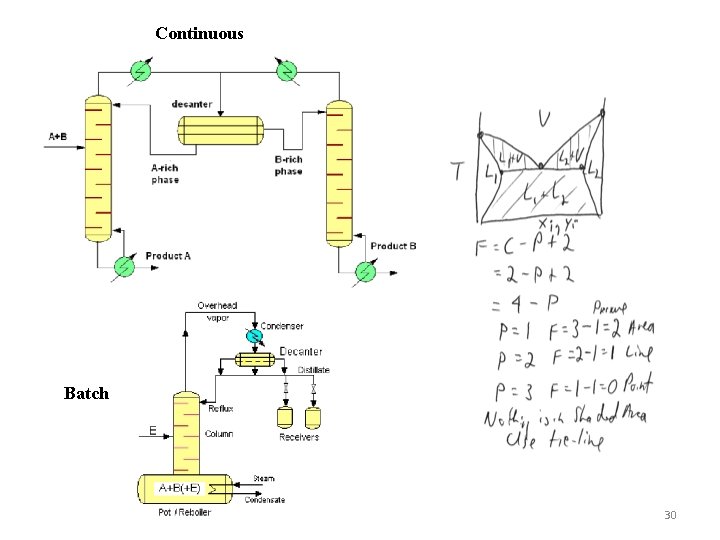 Continuous
decanter
A+B
A-rich
phase
B-rich
phase
Product A
Product B
V
T
L₁+V
L₂+V
L₁
L₂
L₁+L₂
Xi, Yi
F = C - P + 2
= 2 - P + 2
= 4 - P
P = 1 F = 3-1 = 2 Area
P = 2 F = 2-1 = 1 Line
P = 3 F = 1-1 = 0 Point
Nothing is in Shaded Area
Use tie-line
Batch
Overhead
vapor
Condenser
Decanter
Distillate
Reflux
Receivers
E
Column
A+B(+E)
Steam
Condensate
Pot / Reboiler
30